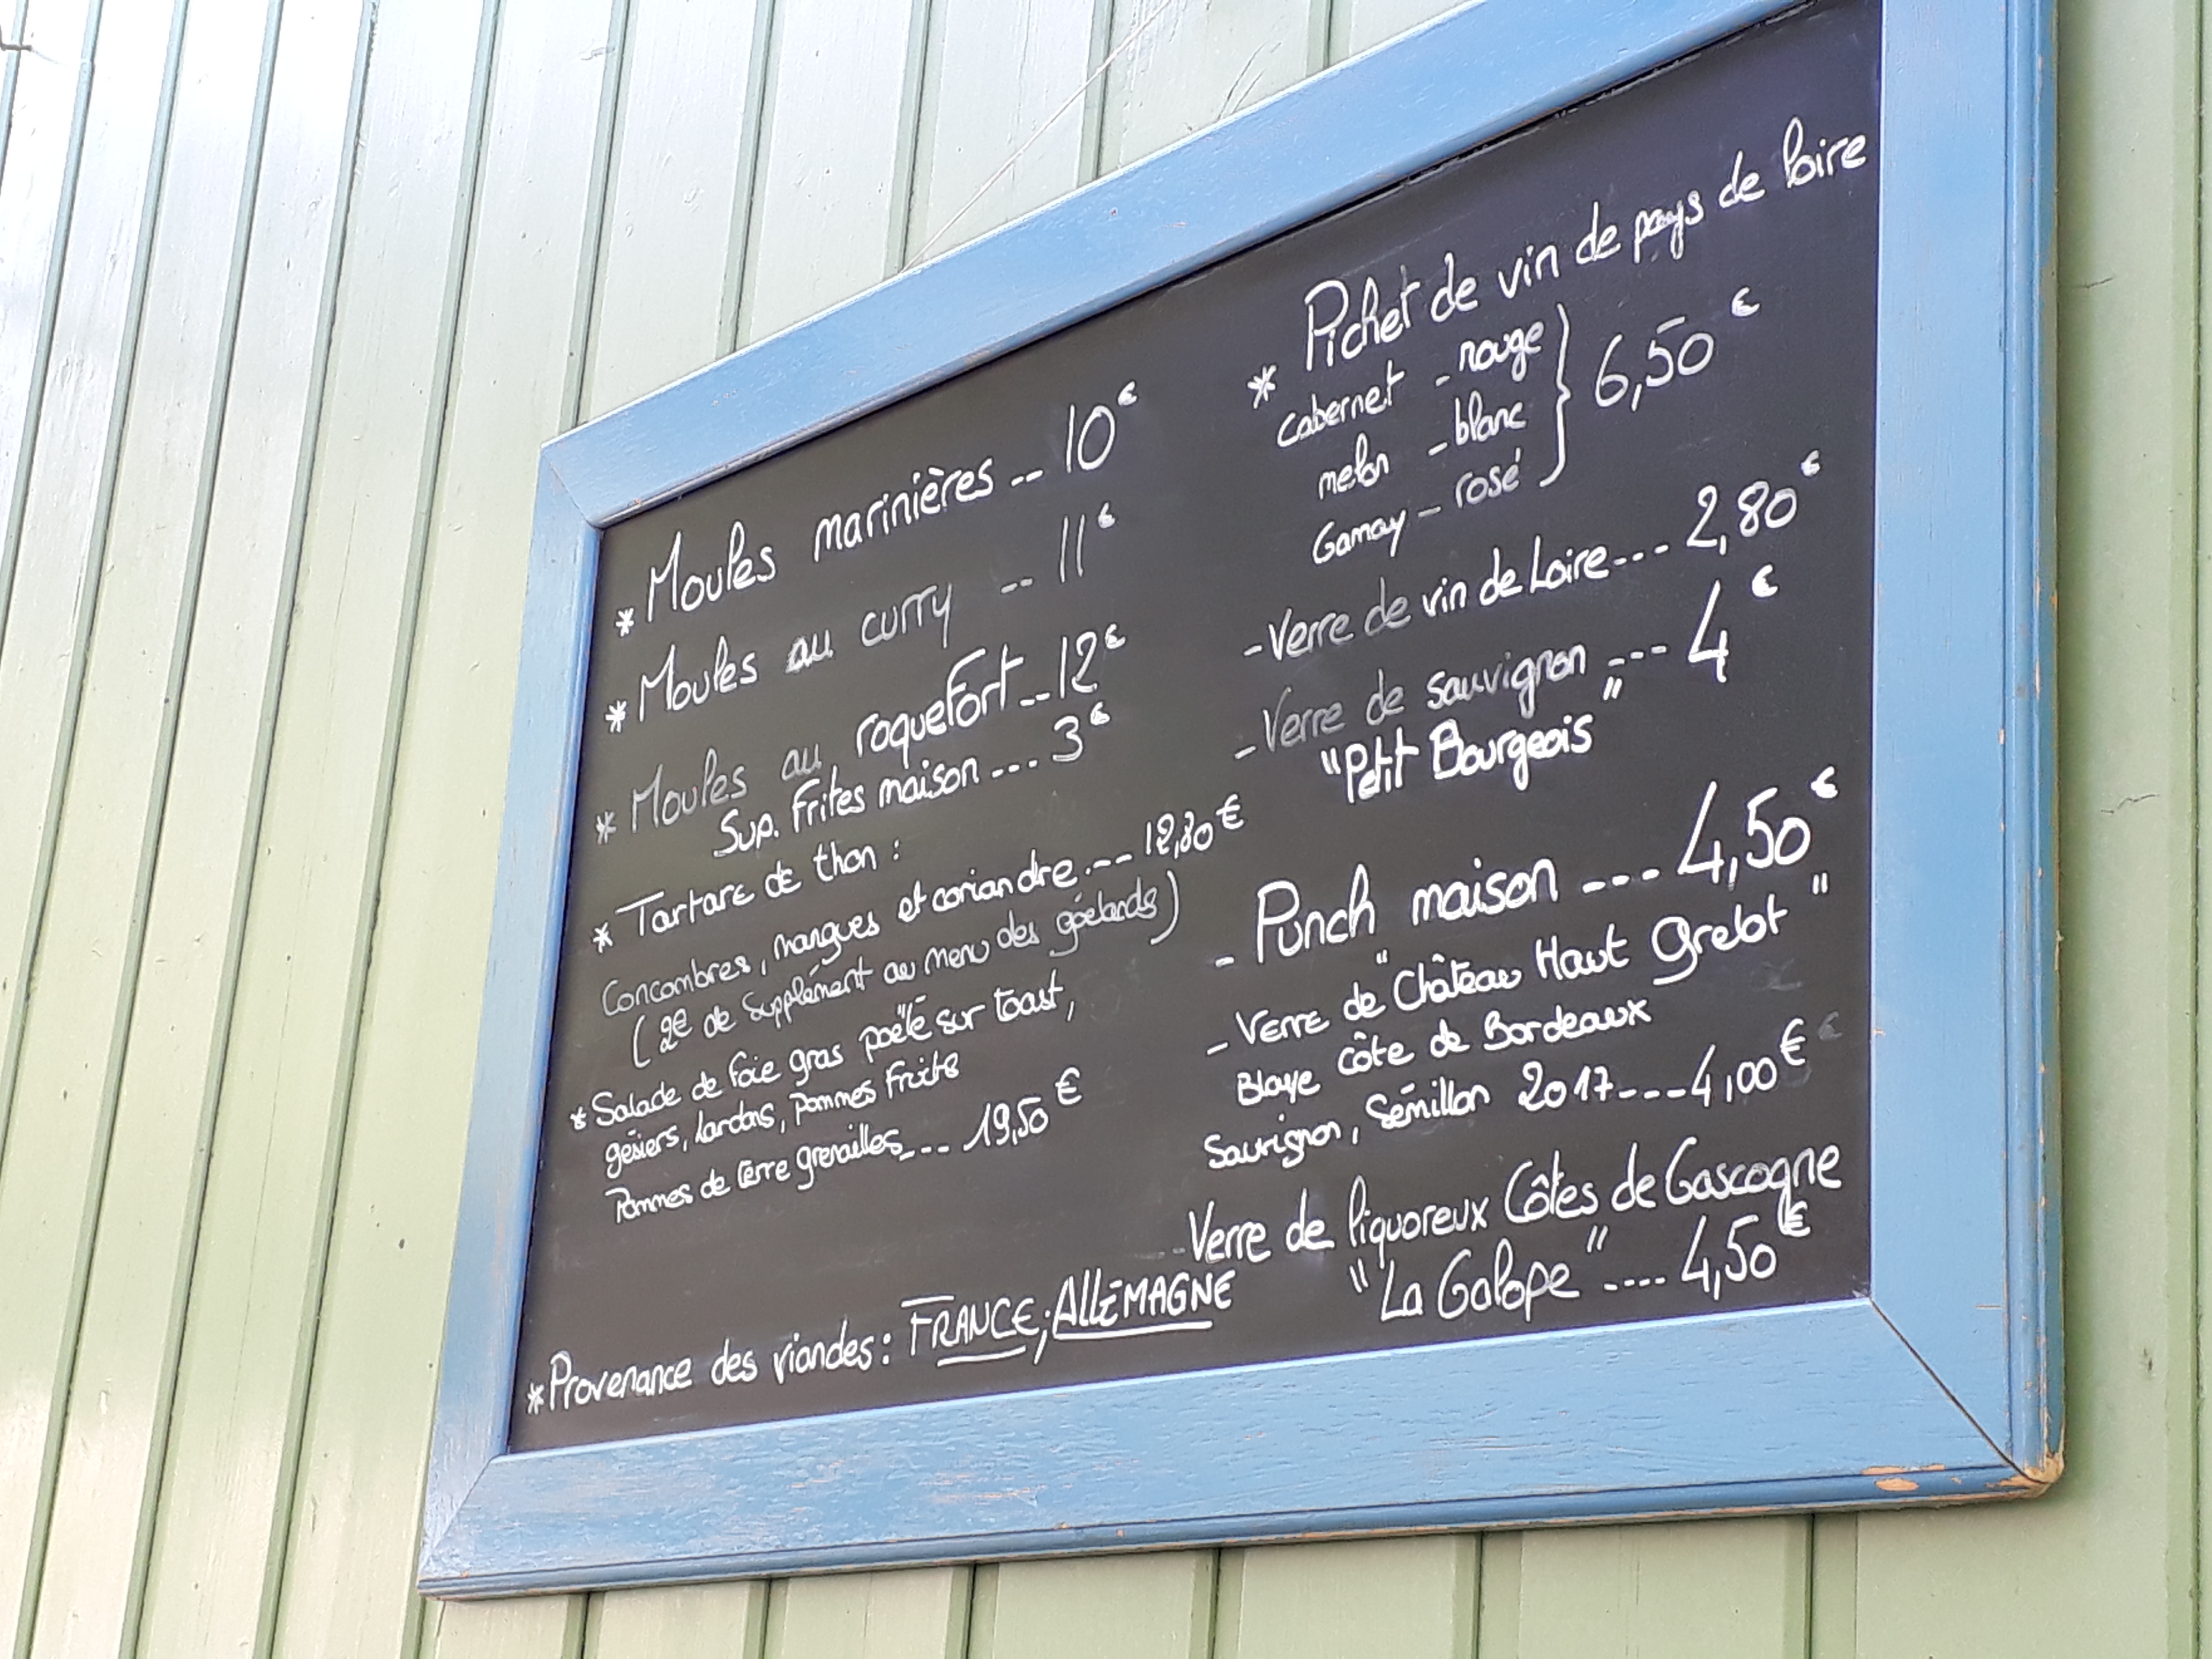 * Moules marinières -- 10€
* Moules au curry -- 11€
* Moules au roquefort -- 12€
Sup. Frites maison --- 3€
* Tartare de thon :
Concombres, mangues et coriandre ---- 12,80€
( 2€ de supplément au menu des goélands )
* Salade de foie gras poëlé sur toast,
gésiers, lardons, pommes fruits
Pommes de terre grenailles --- 19,50€
* Provenance des viandes : FRANCE ; ALLEMAGNE
* Pichet de vin de pays de loire
cabernet - rouge
melon - blanc } 6,50€
Gamay - rosé
- Verre de vin de Loire --- 2,80€
- Verre de sauvignon --- 4€
"Petit Bourgeois"
- Punch maison --- 4,50€
- Verre de "Château Haut Grelot"
Blaye côte de Bordeaux
Sauvignon, Sémillon 2017 --- 4,00€
- Verre de liquoreux Côtes de Gascogne
"La Galope" ---- 4,50€